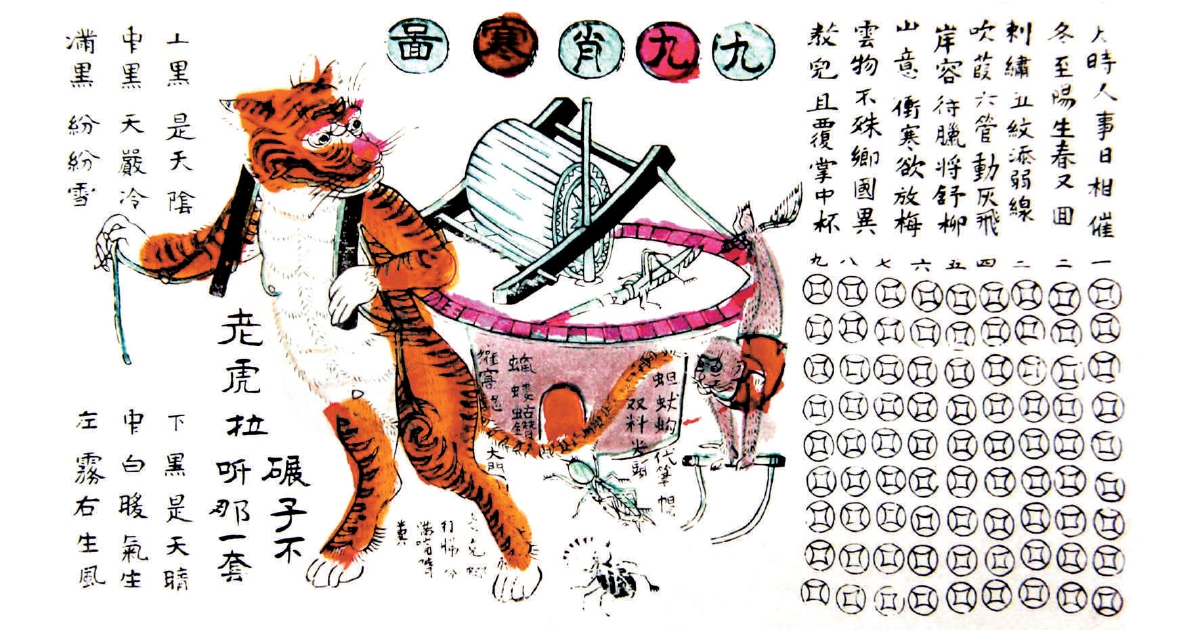 九九肖寒啚
天時人事日相催
冬至陽生春又囬
刺繡五紋添弱線
吹葭六管動灰飛
岸容待臘將舒柳
山意衝寒欲放梅
雲物不殊鄉國異
教兒且覆掌中杯
一 二 三 四 五 六 七 八 九
上黑是天陰
中黑天嚴冷
滿黑紛紛雪
老虎拉
碾子不
听那一套
下黑是天晴
中白暖氣生
左霧右生風
双料尖頭
大門